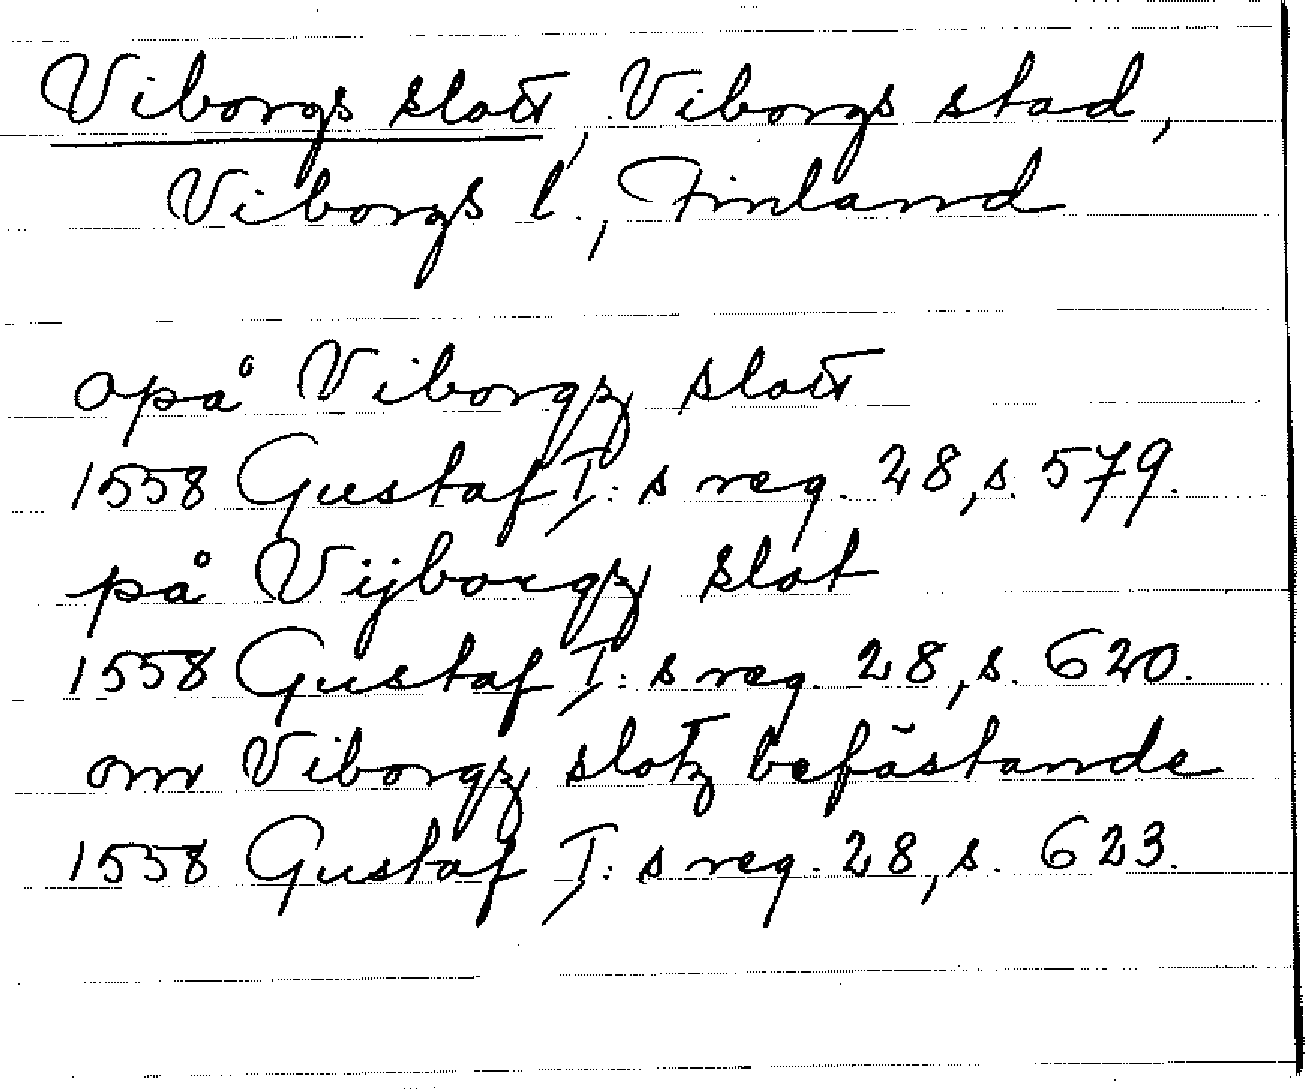 Viborgs slott, Viborgs stad,
Viborgs l., Finland
opå Viborgz slott
1558 Gustaf I:s reg. 28, s. 579.
på Vijborgz slot
1558 Gustaf I:s reg. 28, s. 620.
om Viborgz slotz befästande
1558 Gustaf I:s reg. 28, s. 623.